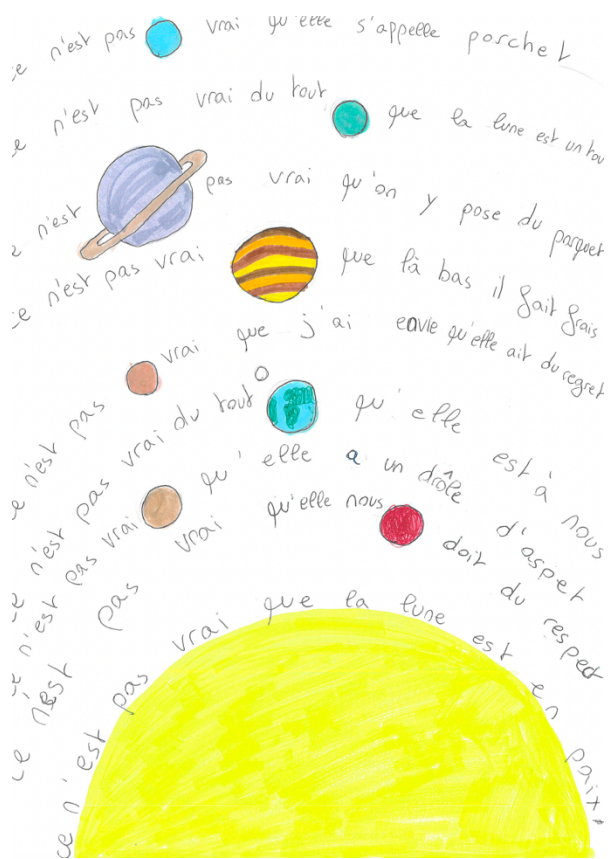 ce n'est pas vrai qu'elle s'appelle porchet
ce n'est pas vrai du tout que la lune est un tou
ce n'est pas vrai qu'on y pose du parquet
ce n'est pas vrai que là bas il fait frais
ce n'est pas vrai que j'ai envie qu'elle ait du regret
ce n'est pas vrai du tout qu'elle est à nous
ce n'est pas vrai qu'elle a un drôle d'aspect
ce n'est pas vrai qu'elle nous doit du respect
ce n'est pas vrai que la lune est en paix.